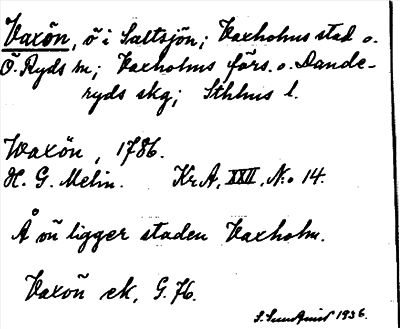 Vaxön, ö i Saltsjön; Vaxholms stad o.
Ö. Ryds sn; Vaxholms förs. o. Dande-
ryds skg; Sthlms l.
Waxön, 1786.
H. G. Melin. Kr. A, XXII, No 14.
Å ön ligger staden Vaxholm.
Vaxön ek, G. 76.
1936.